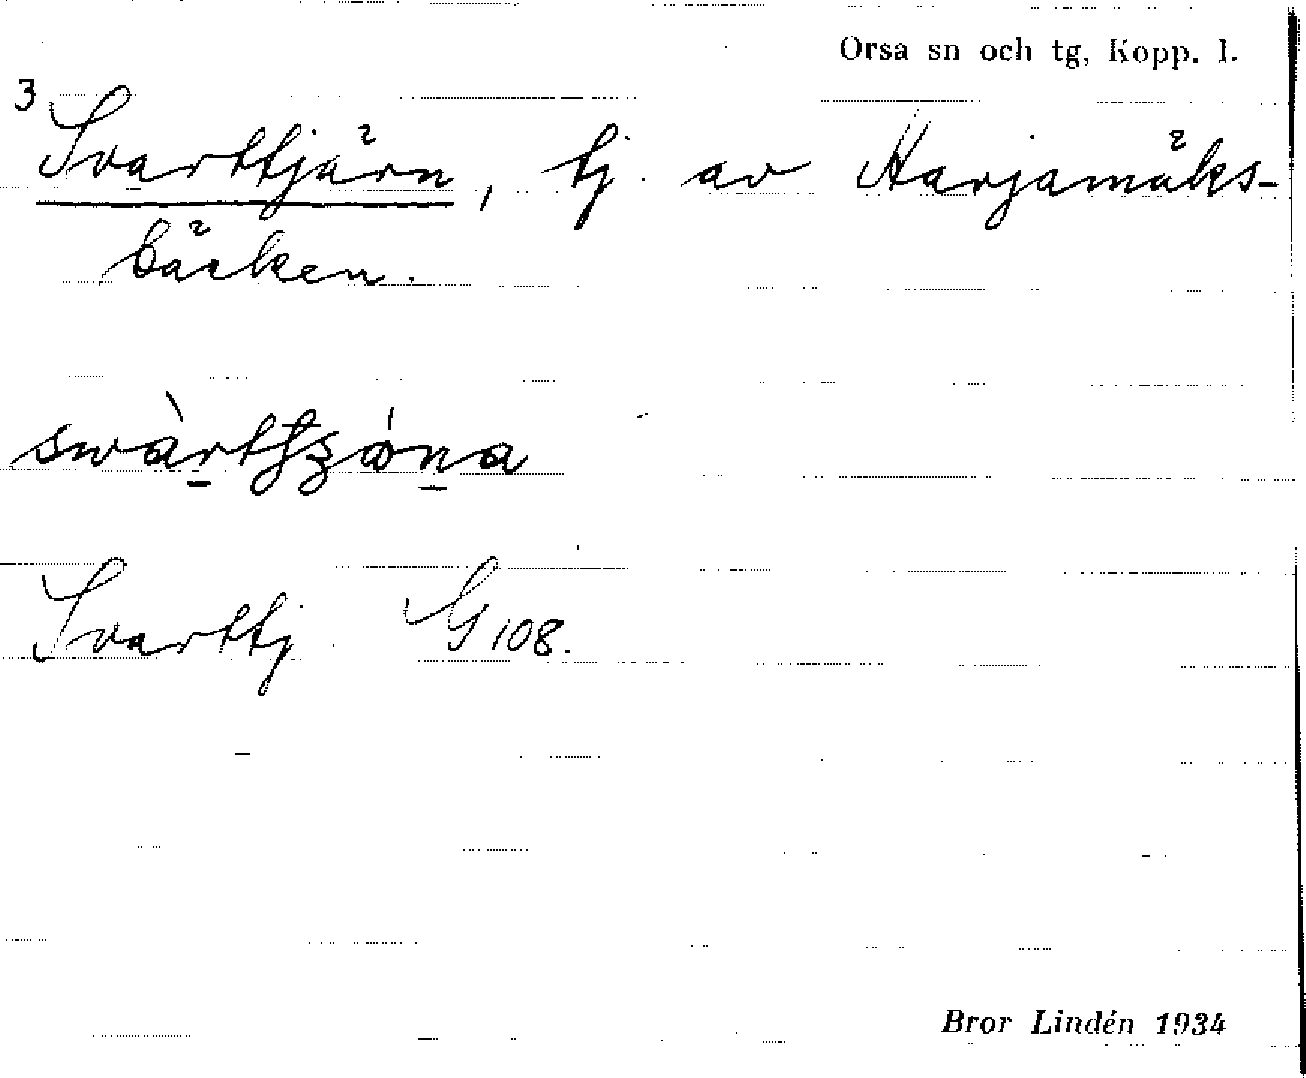 Orsa sn och tg, Kopp. l.
3
Svarttjärn, tj. av Harjamäks-
bäcken.
Svarttj G 108.
Bror Lindén 1934